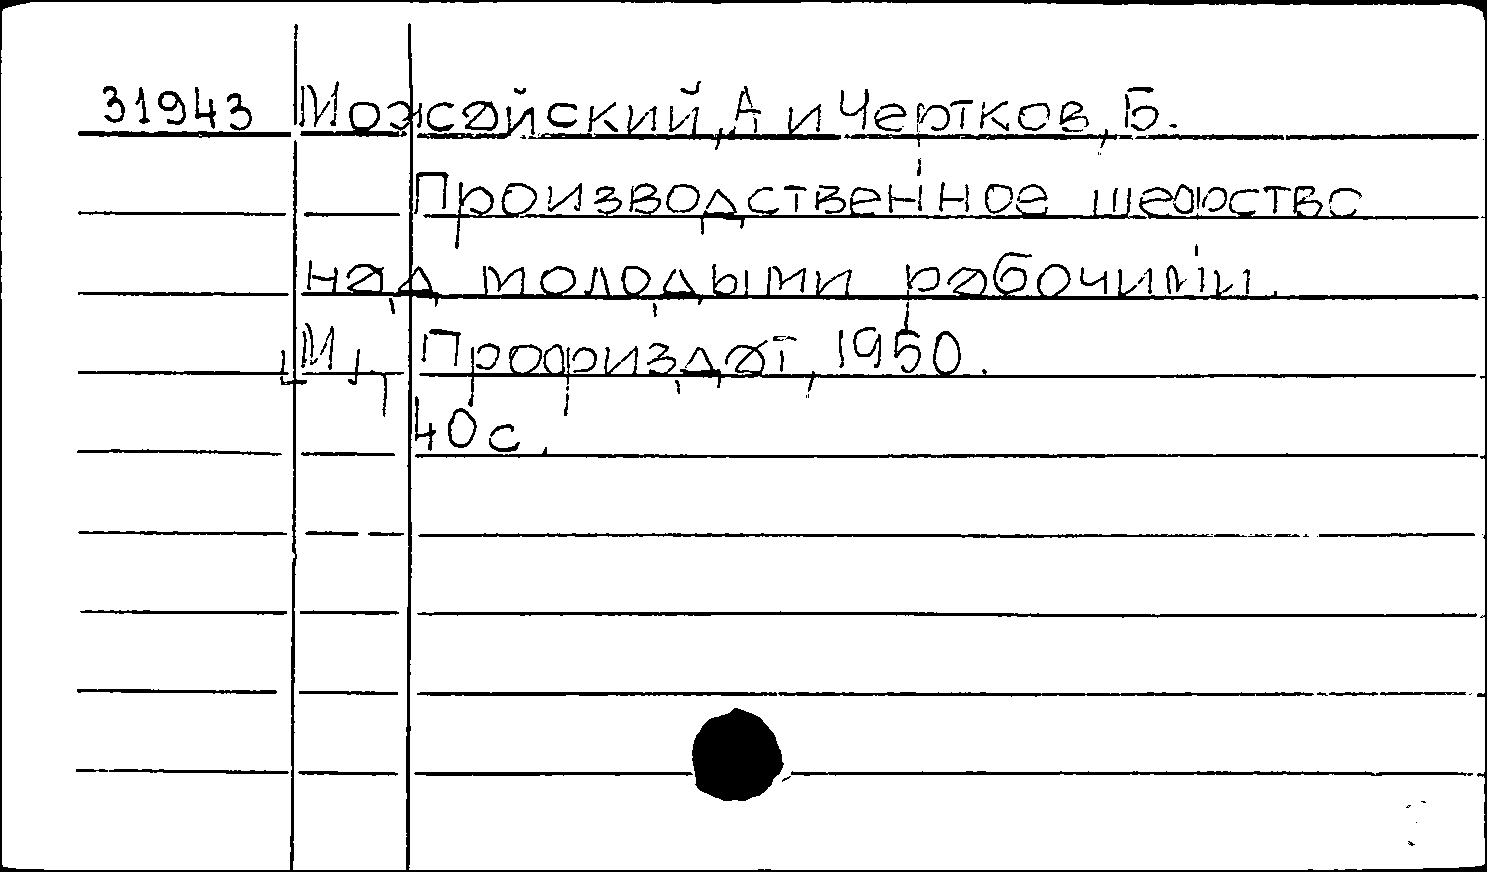 31943 Можайский, А и Чертков, Б.
Производственное шефство
над молодыми рабочими.
[М.], Профиздат, 1950.
40 с.